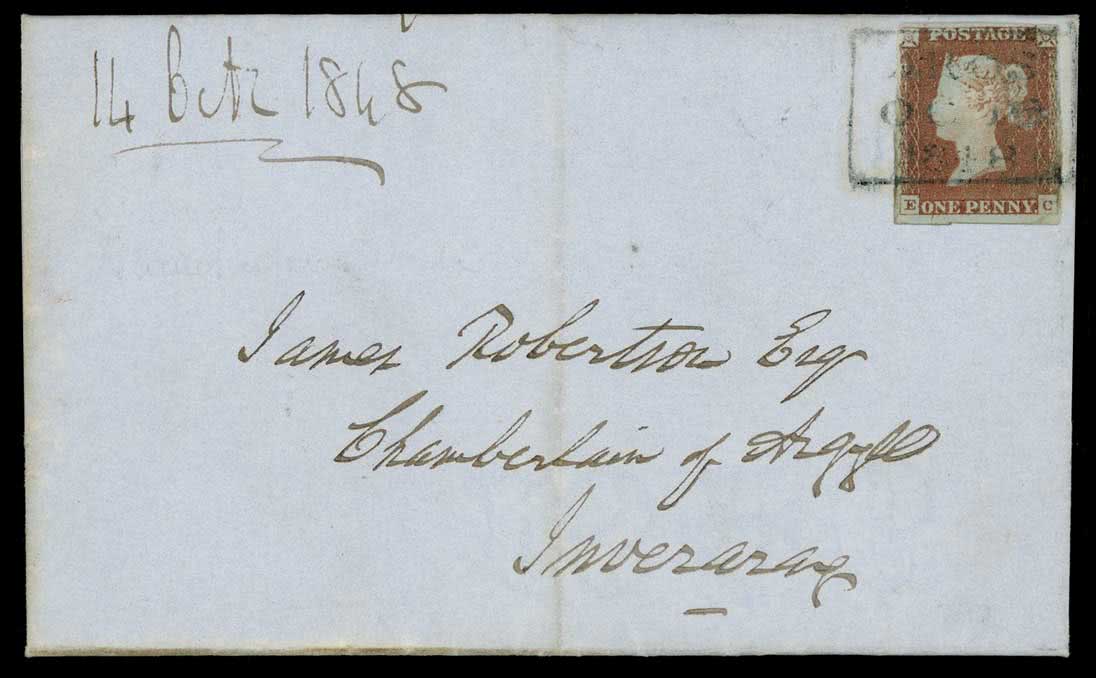 14 Octr 1848
POSTAGE
1848
E ONE PENNY. C
James Robertson Esq
Chamberlain of Argyll
Inveraray